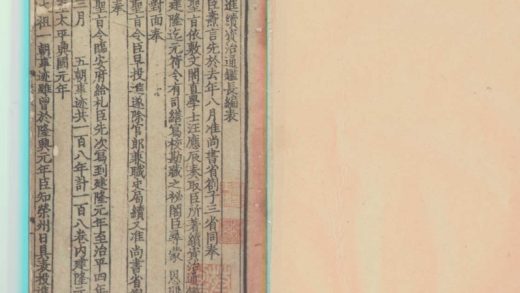 進續資治通鑑長編表
臣燾言先於去年八月准尚書省劄子三省同奉
聖旨依敷文閣直學士汪應辰奏取臣所著續資治通鑑
建隆迄元符令有司繕寫校勘藏之秘閣臣尋蒙 恩
對面奉
聖旨令臣早投進遂除官郎兼職史局續又准尚書省
奉
聖旨令臨安府給札臣先次寫到建隆元年至治平四年
三月 五朝事迹共一百八年計一百八卷內建隆元
太平興國元年
祖一朝事迹雖曾於隆興元年臣知榮州日具表投進